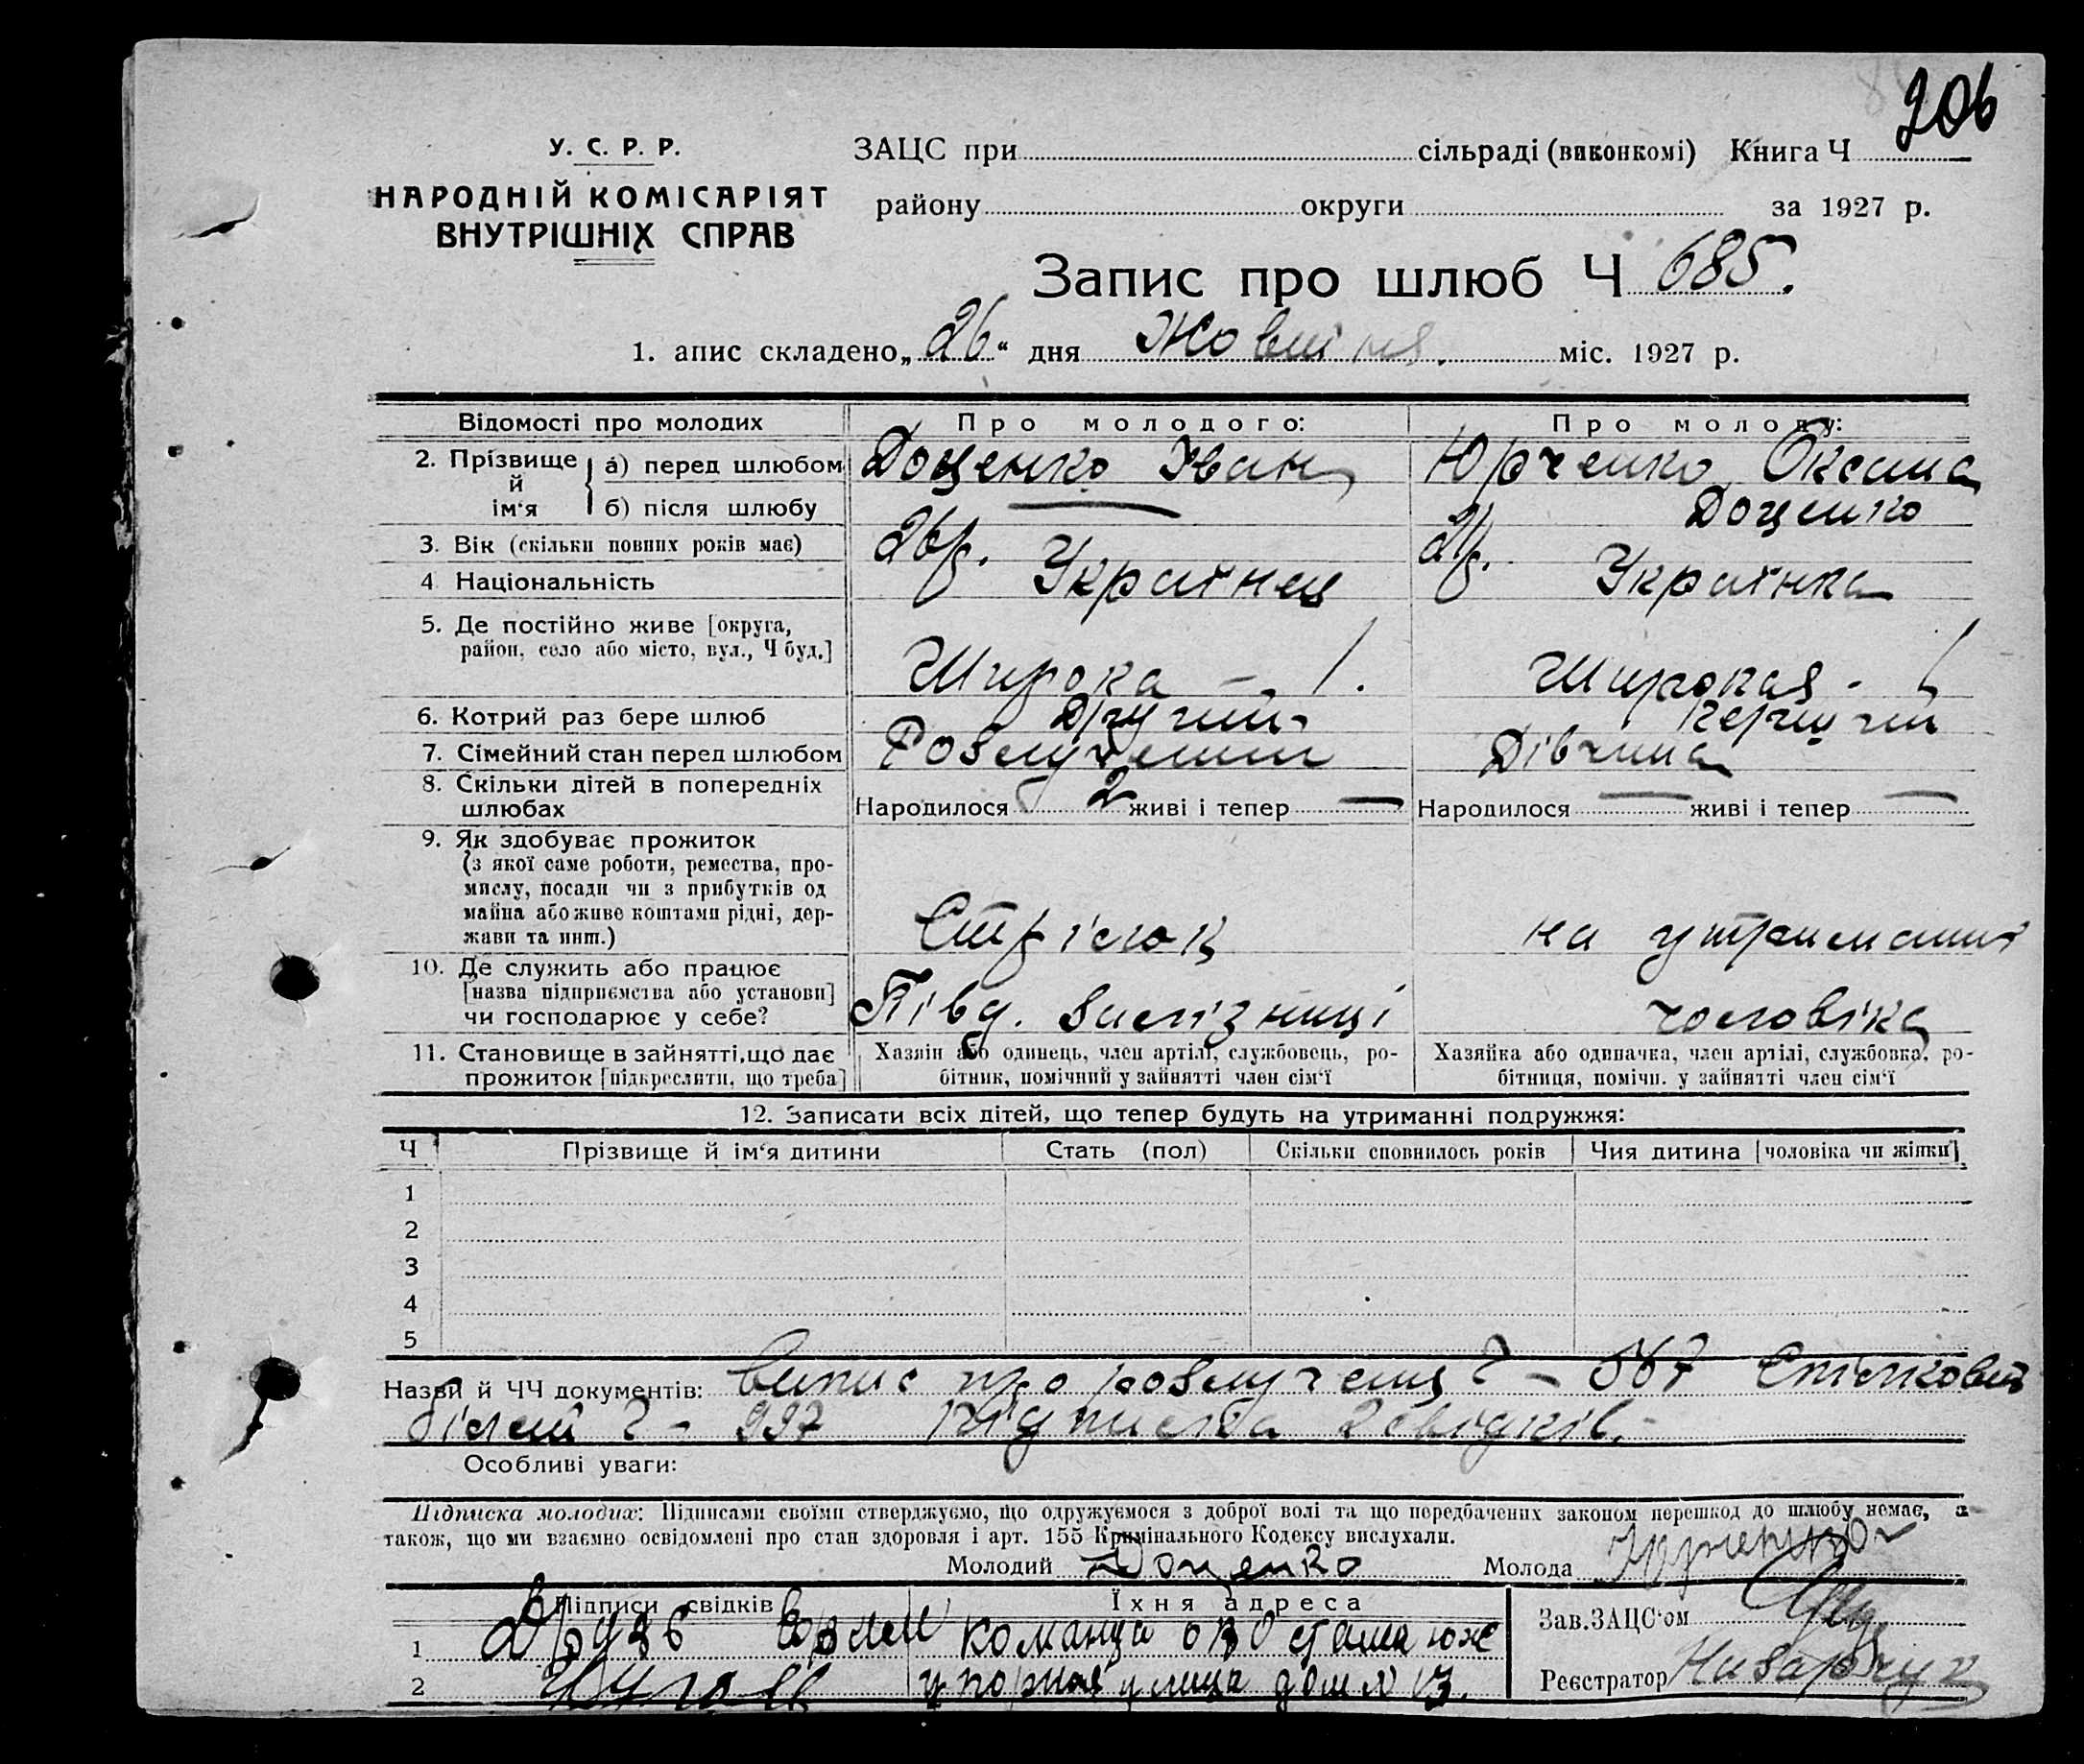 206
У. С. Р. Р.
НАРОДНІЙ КОМІСАРІЯТ
ВНУТРІШНІХ СПРАВ
ЗАЦС при сільраді (виконкомі) Книга Ч
району округи за 1927 р.
Запис про шлюб Ч 685.
1. апис складено „26“ дня Жовтня. міс. 1927 р.
Відомості про молодих Про молодого: Про молоду:
2. Прізвище й ім‘я а) перед шлюбом Доценко Іван Юрченко Оксана
б) після шлюбу Доценко
3. Вік (скільки повних років має) 26 р. 21 р.
4 Національність Украінец Украінка
5. Де постійно живе [округа,
район, село або місто, вул., Ч буд.] Широка – 1. Широкая - 1
6. Котрий раз бере шлюб Другий Перший
7. Сімейний стан перед шлюбом Розлучений Дівчина
8. Скільки дітей в попередніх
шлюбах Народилося 2 живі і тепер — Народилося — живі і тепер —
9. Як здобуває прожиток
(з якої саме роботи, ремества, про-
мислу, посади чи з прибутків од
майна або живе коштами рідні, дер-
жави та инш.) Стрілок на утриманні
10. Де служить або працює
[назва підприємства або установи]
чи господарює у себе? Півд. Залізниці чоловіка
11. Становище в зайнятті, що дає
прожиток [підкреслити, що треба]
Хазяін або одинець, член артілі, службовець, ро-
бітник, помічний у зайнятті член сім‘ї
Хазяйка або одиначка, член артілі, службовка, ро-
бітниця, помічн. у зайнятті член сім‘ї
12. Записати всіх дітей, що тепер будуть на утриманні подружжя:
Ч Прізвище й ім‘я дитини Стать (пол) Скільки сповнилось років Чия дитина [чоловіка чи жінки]
1
2
3
4
5
Назви й ЧЧ документів: Випис про розлучення Ч – 567
білет Ч - 997 підписка 2 свідків.
Особливі уваги:
Підписка молодих: Підписами своїми стверджуємо, що одружуємося з доброї волі та що передбачених законом перешкод до шлюбу немає, а
також, що ми взаємно освідомлені про стан здоровля і арт. 155 Кримінального Кодексу вислухали.
Молодий Доценко Молода Юрченко
Підписи свідків Їхня адреса Зав.ЗАЦС‘ом
1 команда
2 улица дом № 13. Реєстратор